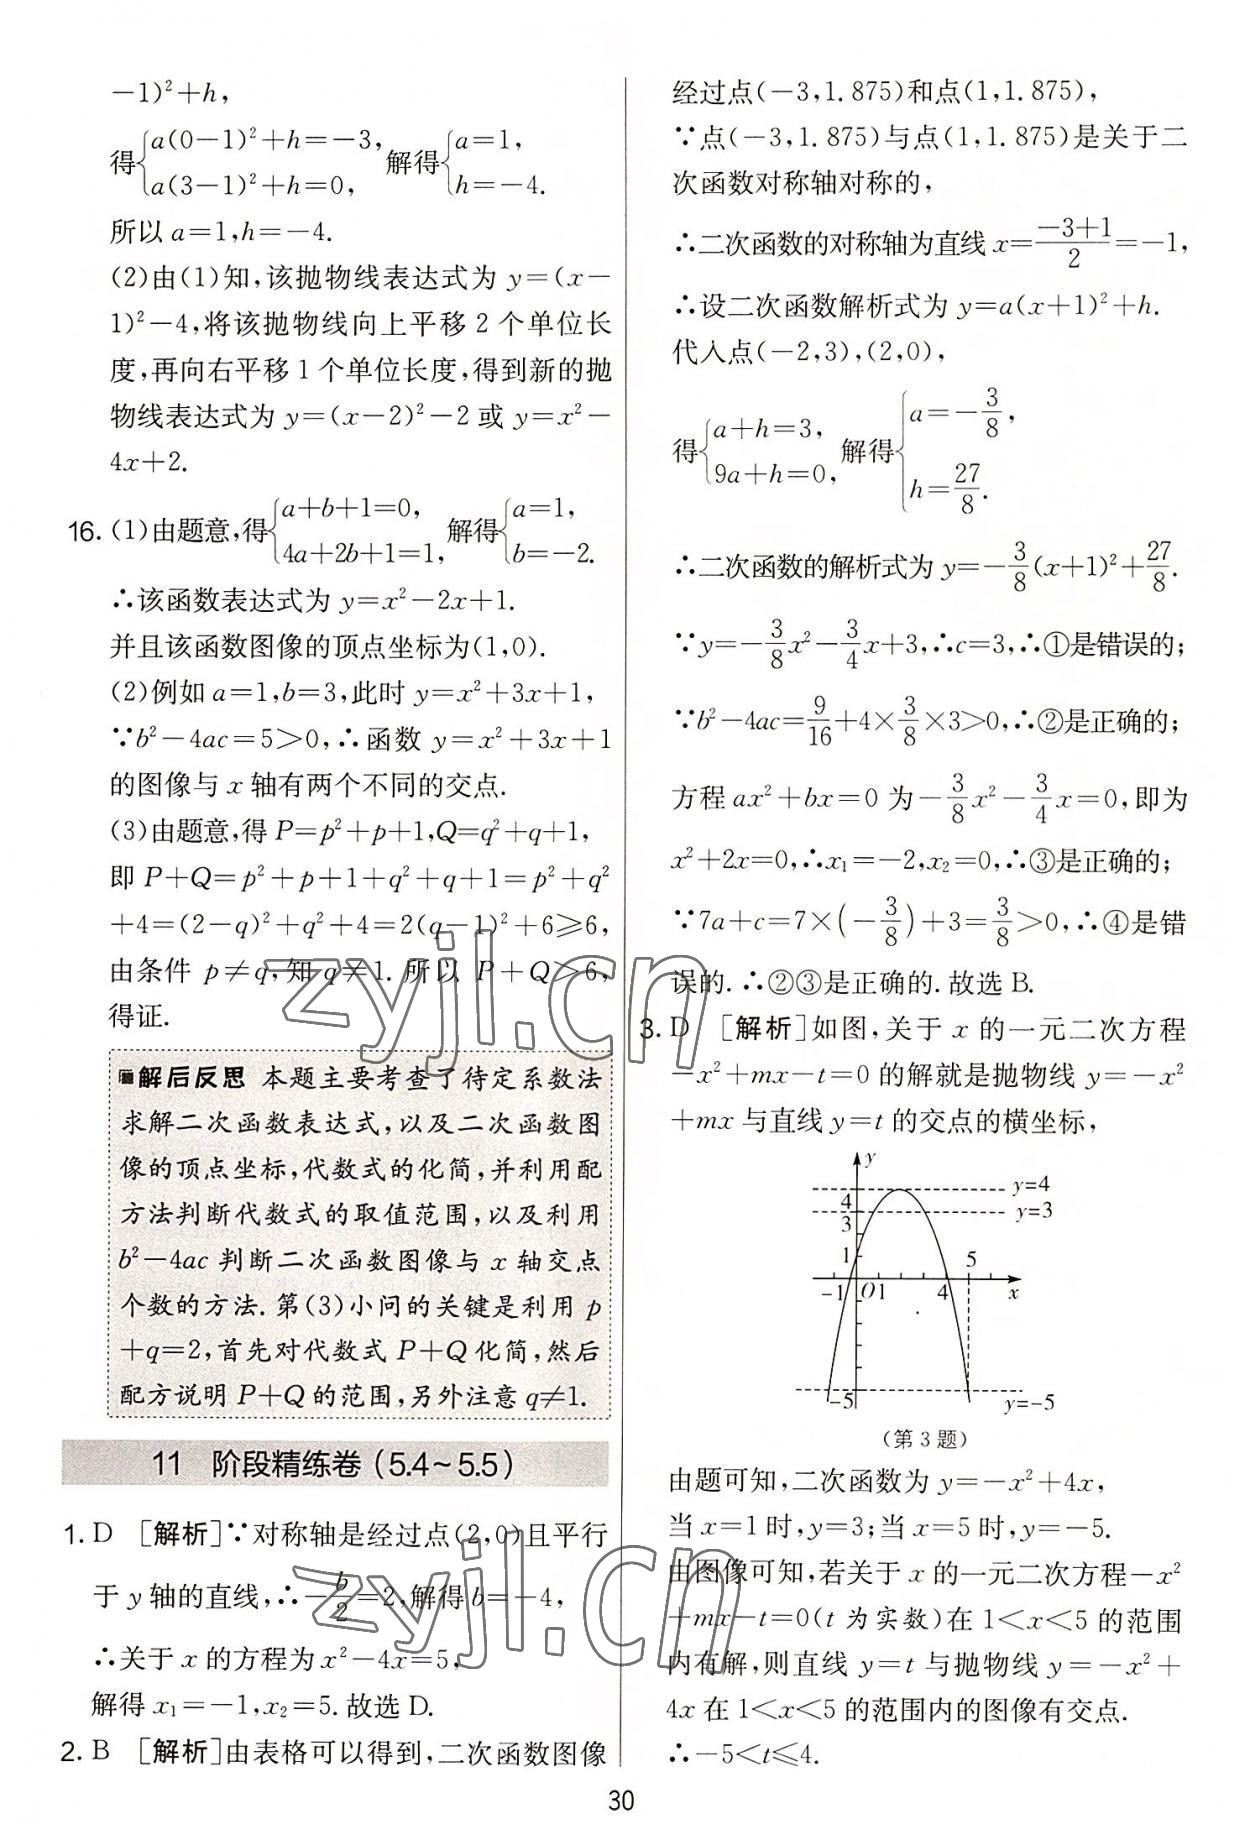 -1)²+h,
得{a(0-1)²+h=-3, a(3-1)²+h=0, 解得{a=1, h=-4.
所以 a=1,h=-4.
(2)由(1)知,该抛物线表达式为 y=(x-
1)²-4,将该抛物线向上平移 2 个单位长
度,再向右平移 1 个单位长度,得到新的抛
物线表达式为 y=(x-2)²-2 或 y=x²-
4x+2.
16. (1)由题意,得{a+b+1=0, 4a+2b+1=1, 解得{a=1, b=-2.
∴该函数表达式为 y=x²-2x+1.
并且该函数图像的顶点坐标为(1,0).
(2)例如 a=1,b=3,此时 y=x²+3x+1,
∵b²-4ac=5>0,∴函数 y=x²+3x+1
的图像与 x 轴有两个不同的交点.
(3)由题意,得 P=p²+p+1,Q=q²+q+1,
即 P+Q=p²+p+1+q²+q+1=p²+q²
+4=(2-q)²+q²+4=2(q-1)²+6≥6,
由条件 p≠q,知 q≠1.所以 P+Q>6,
得证.
解后反思 本题主要考查了待定系数法
求解二次函数表达式,以及二次函数图
像的顶点坐标,代数式的化简,并利用配
方法判断代数式的取值范围,以及利用
b²-4ac 判断二次函数图像与 x 轴交点
个数的方法.第(3)小问的关键是利用 p
+q=2,首先对代数式 P+Q 化简,然后
配方说明 P+Q 的范围,另外注意 q≠1.
11 阶段精练卷(5.4~5.5)
1. D [解析]∵对称轴是经过点(2,0)且平行
于 y 轴的直线,∴-b/2=2,解得 b=-4,
∴关于 x 的方程为 x²-4x=5,
解得 x₁=-1,x₂=5.故选 D.
2. B [解析]由表格可以得到,二次函数图像
经过点(-3,1.875)和点(1,1.875),
∵点(-3,1.875)与点(1,1.875)是关于二
次函数对称轴对称的,
∴二次函数的对称轴为直线 x=(-3+1)/2=-1,
∴设二次函数解析式为 y=a(x+1)²+h.
代入点(-2,3),(2,0),
得{a+h=3, 9a+h=0, 解得{a=-3/8, h=27/8.
∴二次函数的解析式为 y=-3/8(x+1)²+27/8.
∵y=-3/8x²-3/4x+3,∴c=3,∴①是错误的;
∵b²-4ac=9/16+4×3/8×3>0,∴②是正确的;
方程 ax²+bx=0 为-3/8x²-3/4x=0,即为
x²+2x=0,∴x₁=-2,x₂=0,∴③是正确的;
∵7a+c=7×(-3/8)+3=3/8>0,∴④是错
误的.∴②③是正确的.故选 B.
3. D [解析]如图,关于 x 的一元二次方程
-x²+mx-t=0 的解就是抛物线 y=-x²
+mx 与直线 y=t 的交点的横坐标,
y
4
y=4
3
y=3
1
5
-1 O 1 4 x
-5
y=-5
(第 3 题)
由题可知,二次函数为 y=-x²+4x,
当 x=1 时,y=3;当 x=5 时,y=-5.
由图像可知,若关于 x 的一元二次方程-x²
+mx-t=0(t 为实数)在 1<x<5 的范围
内有解,则直线 y=t 与抛物线 y=-x²+
4x 在 1<x<5 的范围内的图像有交点.
∴-5<t≤4.
30
zyjl.cn
zyjl.cn